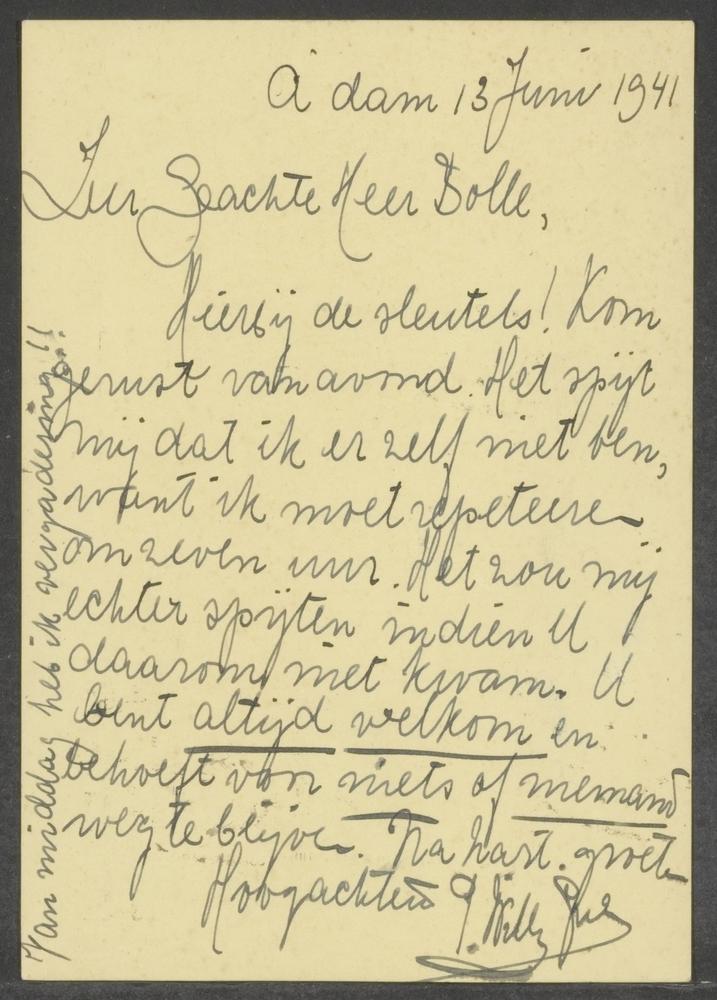 A'dam 13 Juni 1941
Zeer Geachte Heer Bolle,
Hierbij de sleutels! Kom
gerust van avond. Het spijt
mij dat ik er zelf niet ben,
want ik moet repeteeren
om zeven uur. Het zou mij
echter spijten indien U
daarom niet kwam. U
bent altijd welkom en
behoeft voor niets of niemand
weg te blijven. Na hart. groeten
Hoogachtend
Van middag heb ik vergadering!!